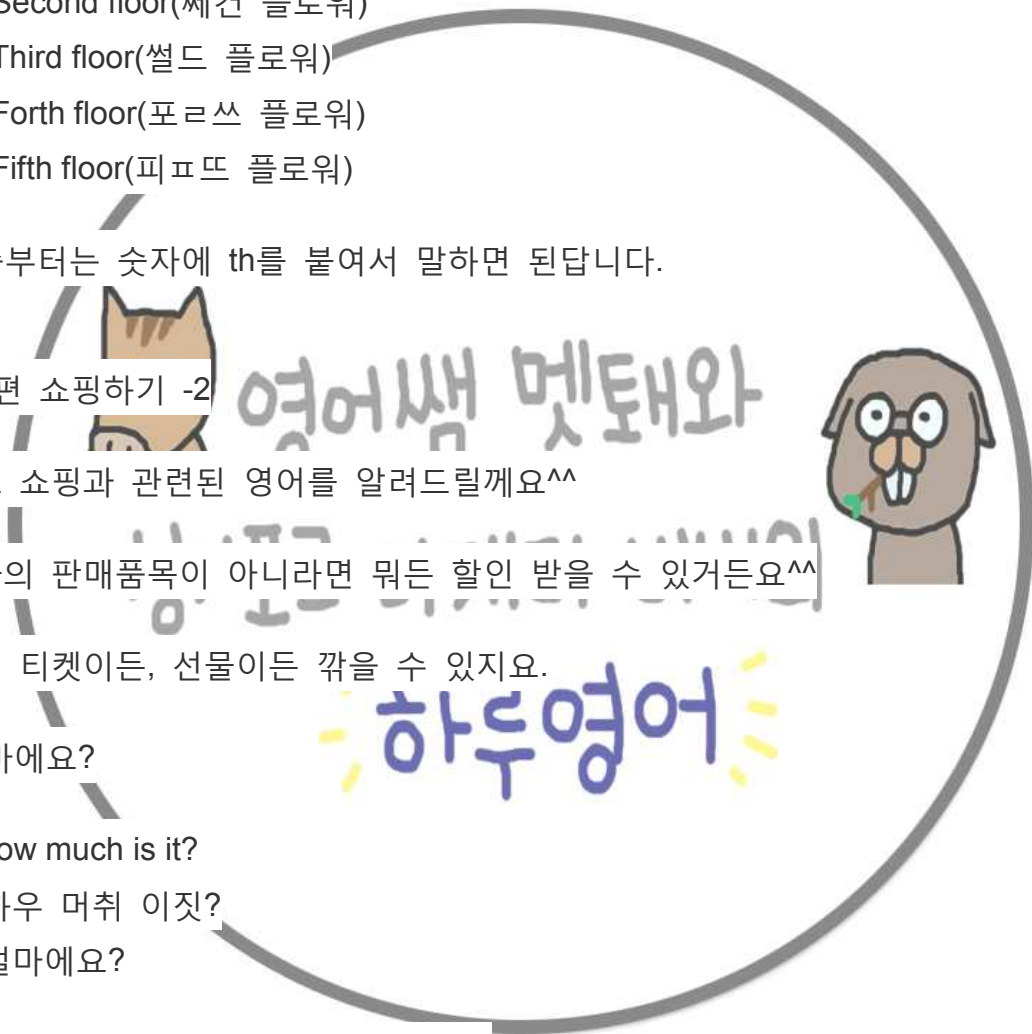 Second floor(쎄컨 플로워)
Third floor(썰드 플로워)
Forth floor(포ㄹ쓰 플로워)
Fifth floor(피ㅍ뜨 플로워)
부터는 숫자에 th를 붙여서 말하면 된답니다.
편 쇼핑하기 -2
영어쌤 멧퇘와
쇼핑과 관련된 영어를 알려드릴께요^^
의 판매품목이 아니라면 뭐든 할인 받을 수 있거든요^^
티켓이든, 선물이든 깎을 수 있지요.
하루영어
마에요?
ow much is it?
하우 머취 이짓?
얼마에요?